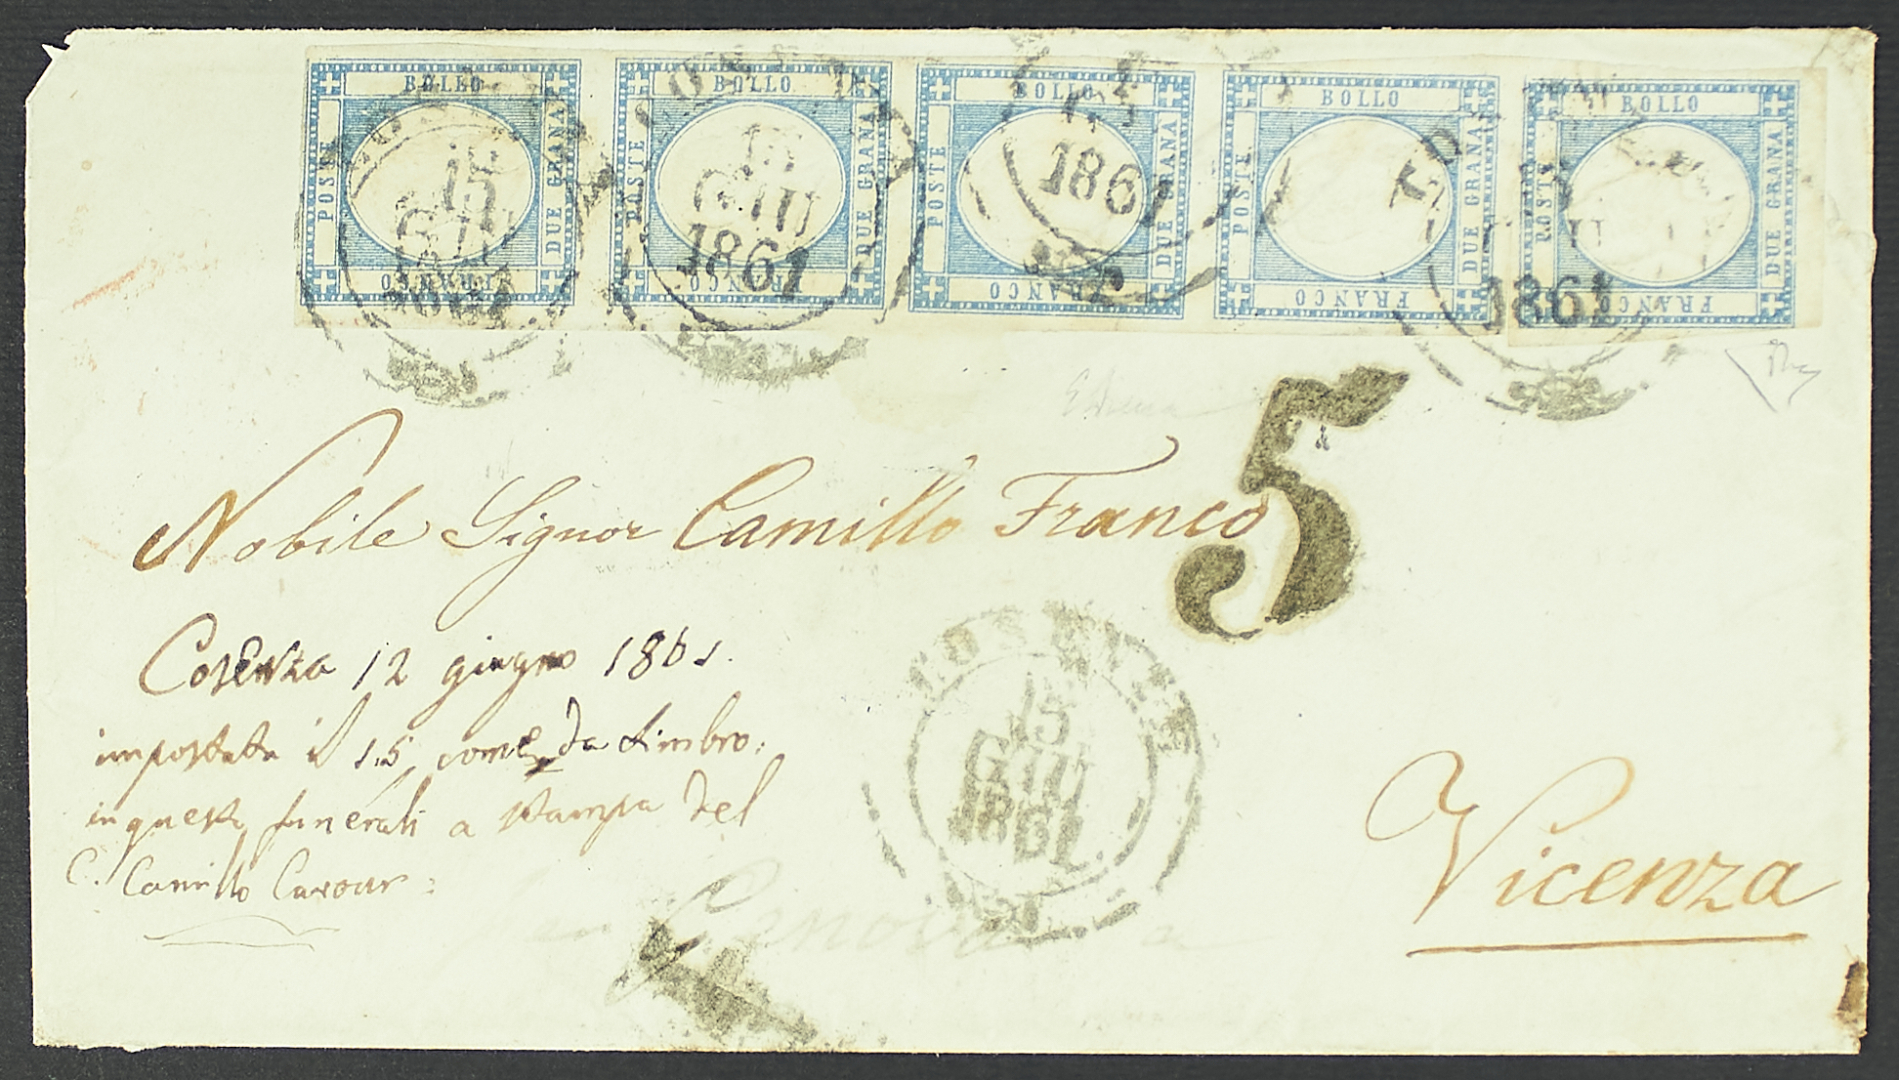 BOLLO POSTE DUE GRANA FRANCO
BOLLO POSTE DUE GRANA FRANCO
BOLLO POSTE DUE GRANA FRANCO
BOLLO POSTE DUE GRANA FRANCO
BOLLO POSTE DUE GRANA FRANCO
15 GIU 1861
15 GIU 1861
1861
1861
5
Nobile Signor Camillo Franco
Cosenza 12 giugno 1861.
impostata il 15 come da timbro.
in questa funerali a stampa del
C. Camillo Cavour.
COSENZA
15
GIU
1861
Vicenza
Genova